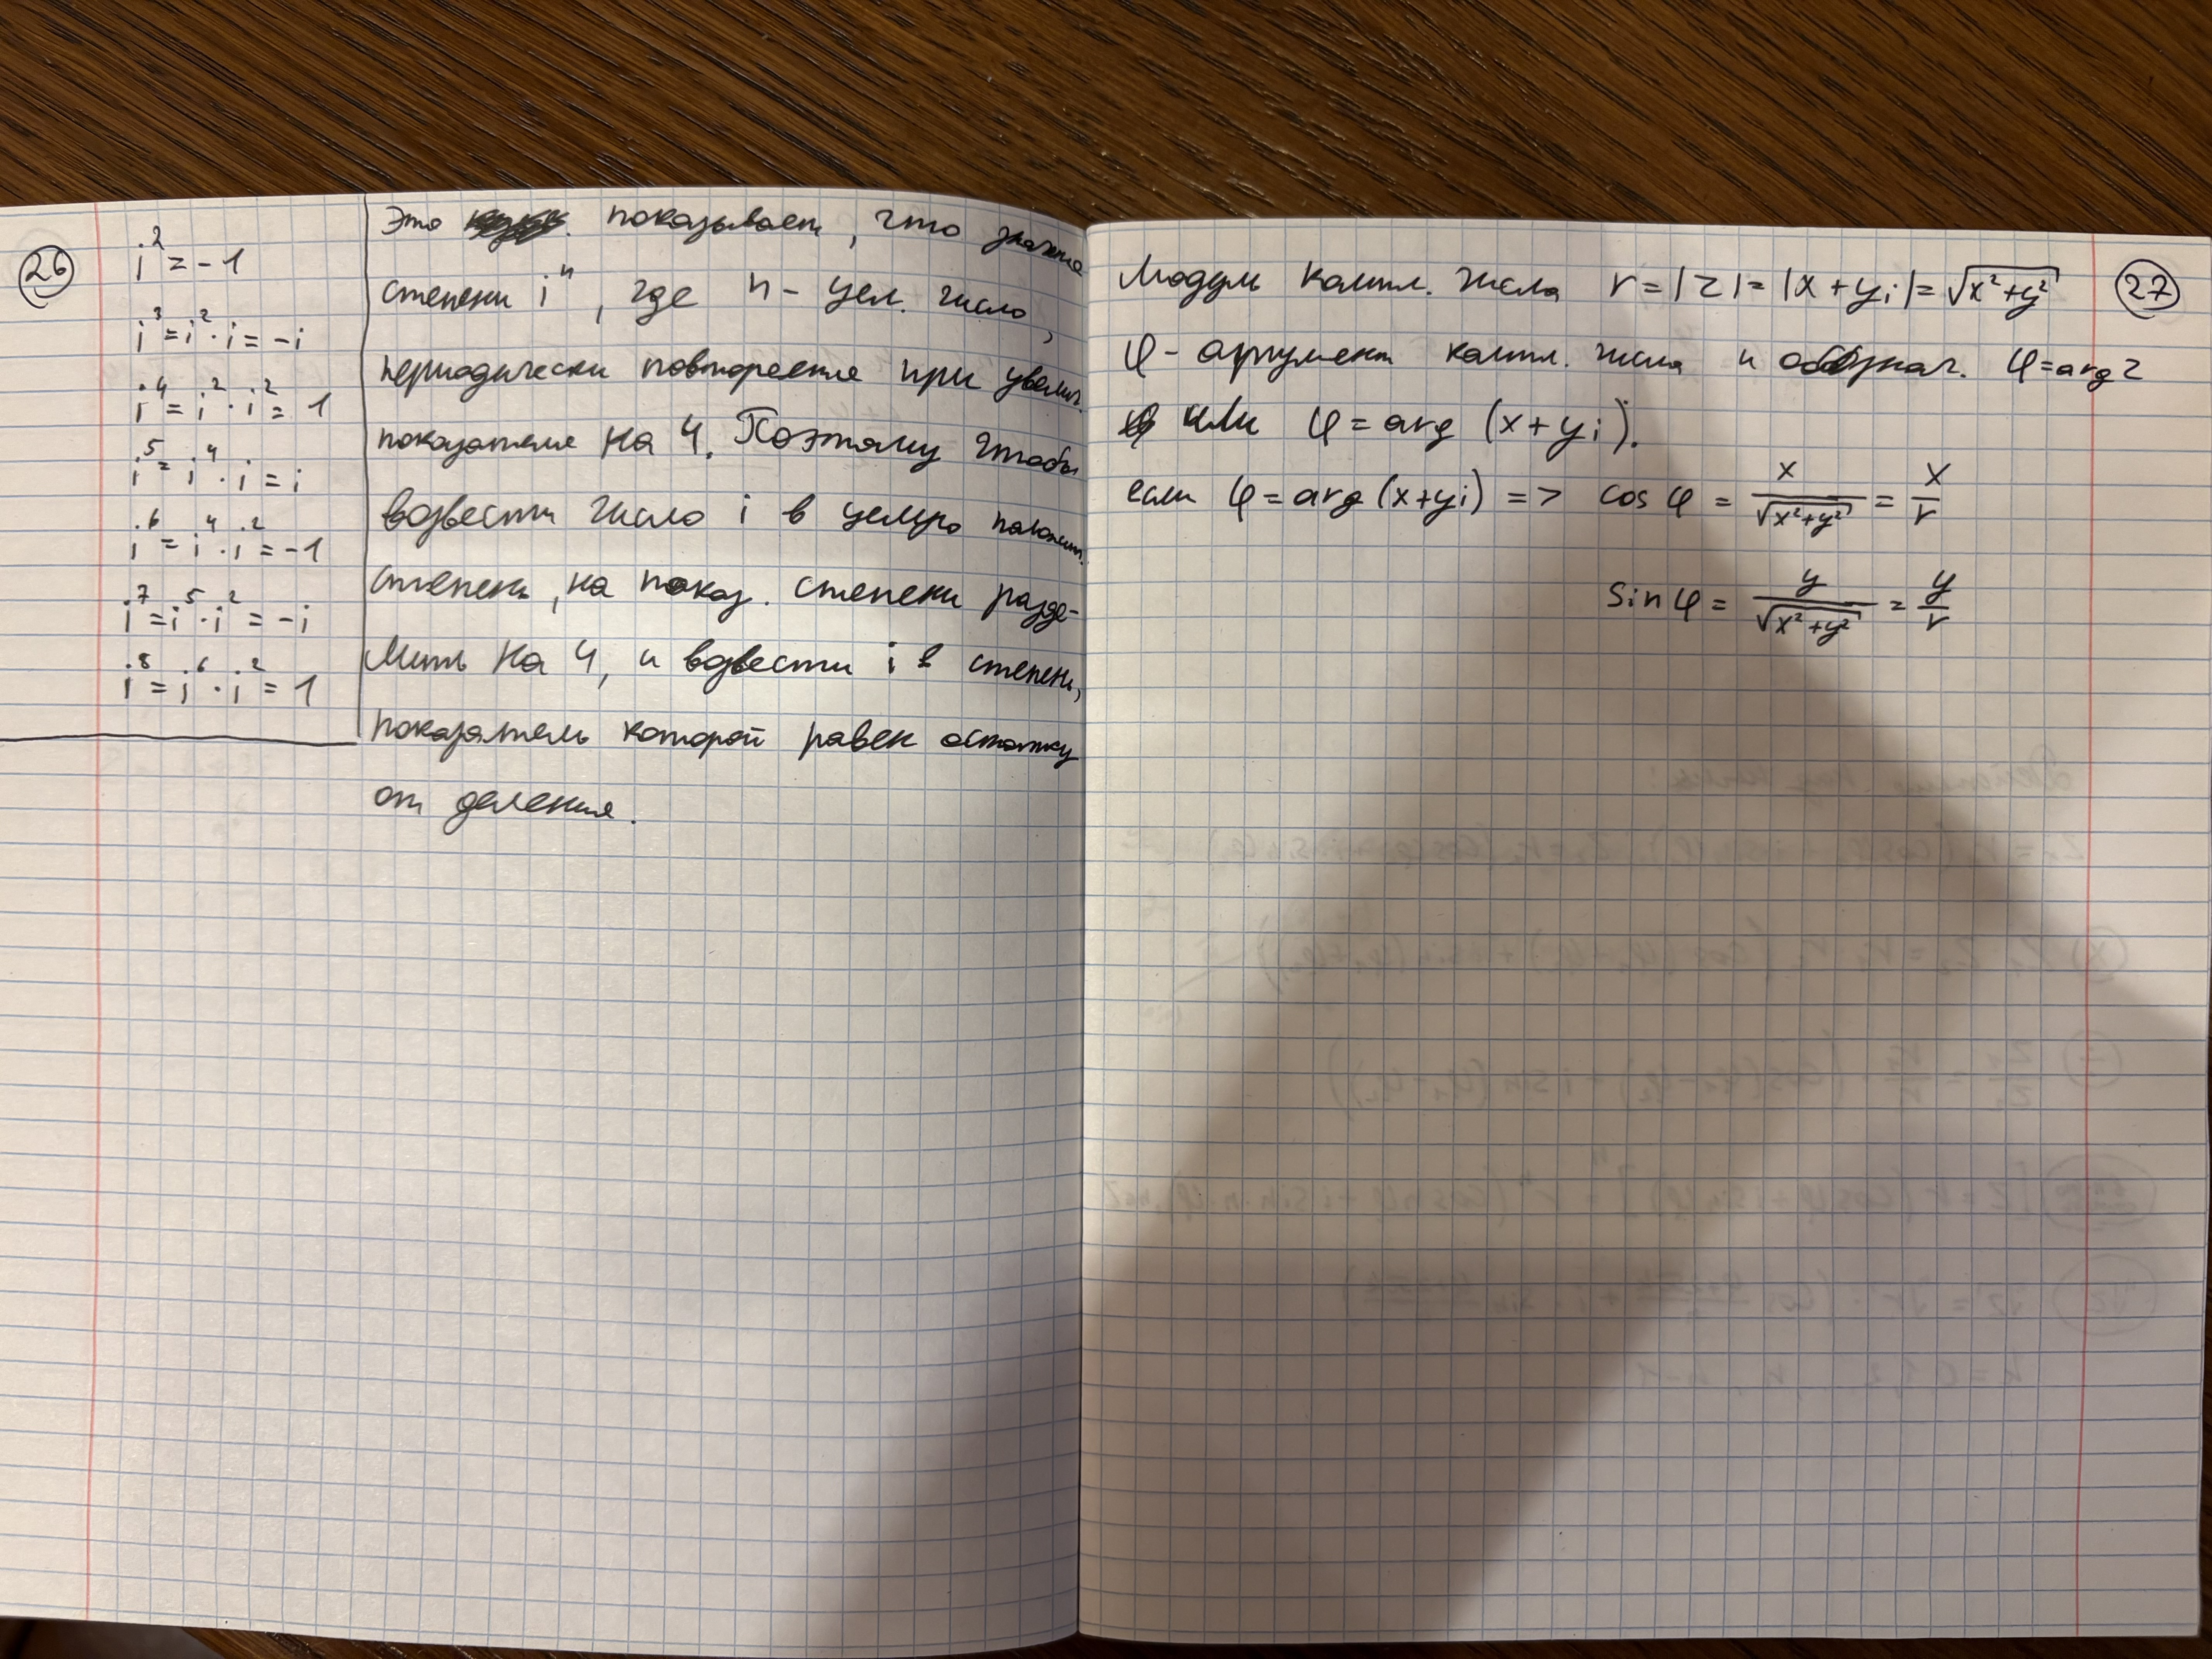 26
i² = -1
i³ = i² · i = -i
i⁴ = i² · i² = 1
i⁵ = i⁴ · i = i
i⁶ = i⁴ · i² = -1
i⁷ = i⁵ · i² = -i
i⁸ = i⁶ · i² = 1
Это показывает, что
степени iⁿ, где n - цел. число,
периодически повторяется при увелич.
показателя на 4. Поэтому чтобы
возвести число i в целую
степень, на показ. степени разде-
лить на 4, и возвести i в степень,
показатель которой равен остатку
от деления.
27
Модуль компл. числа r = |z| = |x + yi| = √(x² + y²)
φ - аргумент компл. числа и обознач. φ = arg z
или φ = arg (x + yi).
если φ = arg (x + yi) => cos φ = x/√(x² + y²) = x/r
sin φ = y/√(x² + y²) = y/r